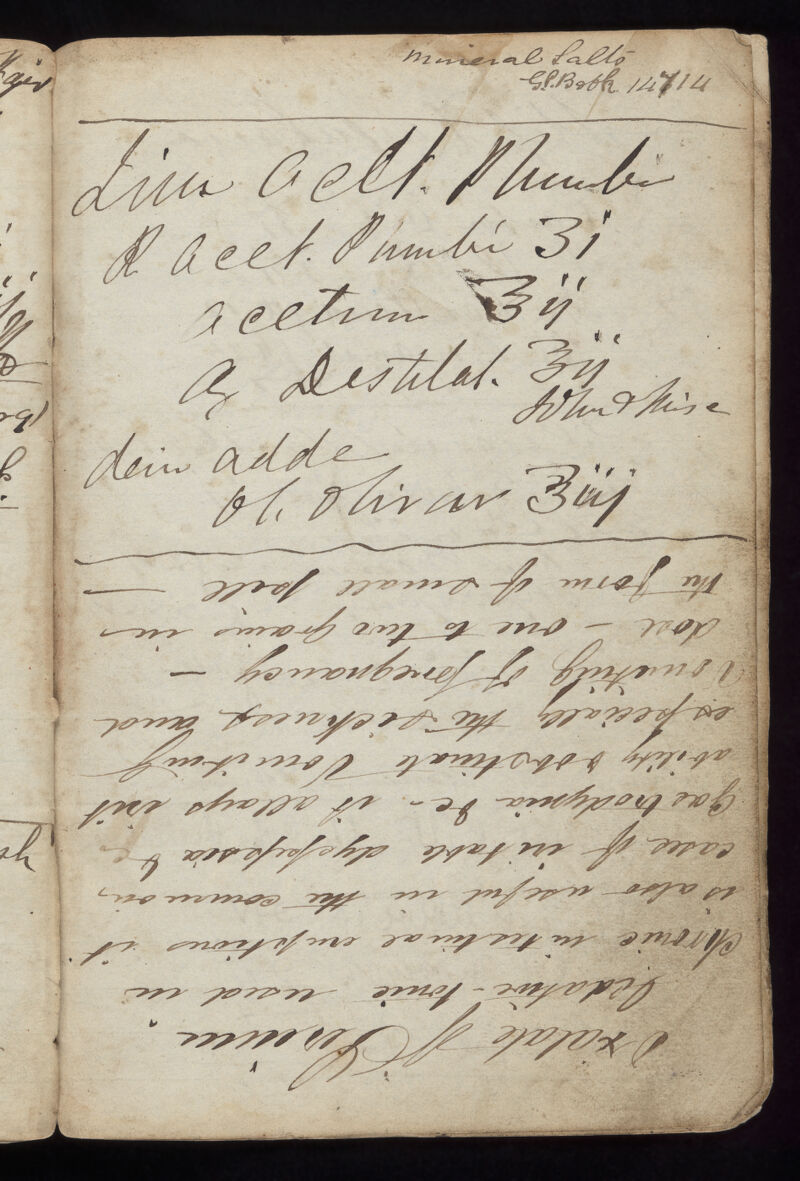 mineral Salts
G.P. Book 14714
Lini Acett. Plumbi
R Acet. Plumbi ʒi
Acetum ʒij
Aq Destilat. ʒij
dein adde
Ol. Olivar ʒiij
Oxalate of Cerium.
Sedative-tonic used in
chronic intestinal eruptions it
is also useful in the common
cases of irritable dyspepsia &c
Gastrodynia &c - it allays irrit
ability & obstinate Vomiting
especially the sickness and
Vomiting of pregnancy -
dose - one to two grains in
the form of small pill -